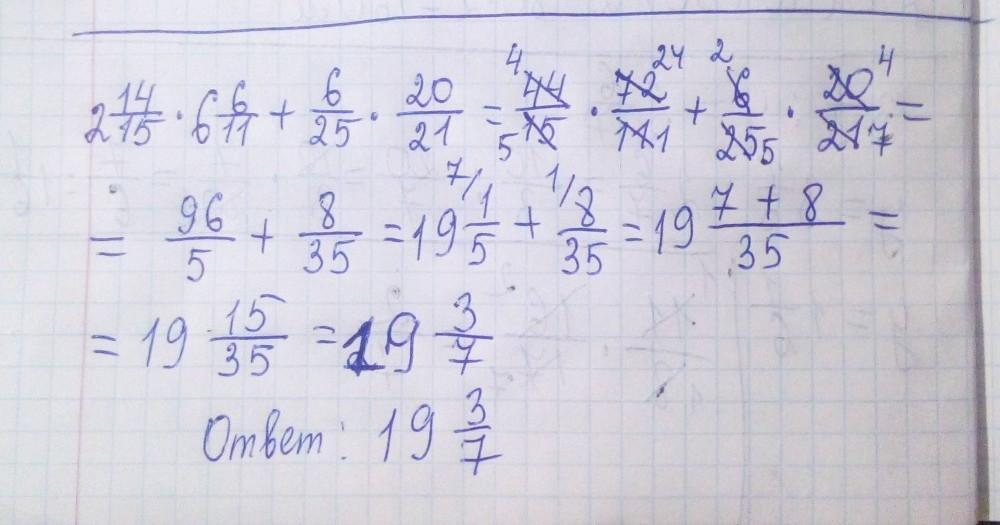 2 14/15 · 6 6/11 + 6/25 · 20/21 = 4 44/15 5 · 72/11 24 1 + 2 6/25 5 · 20/21 4 7 =
= 96/5 + 8/35 = 19 7/ 1/5 + 1/ 8/35 = 19 7 + 8/35 =
= 19 15/35 = 19 3/7
Ответ: 19 3/7